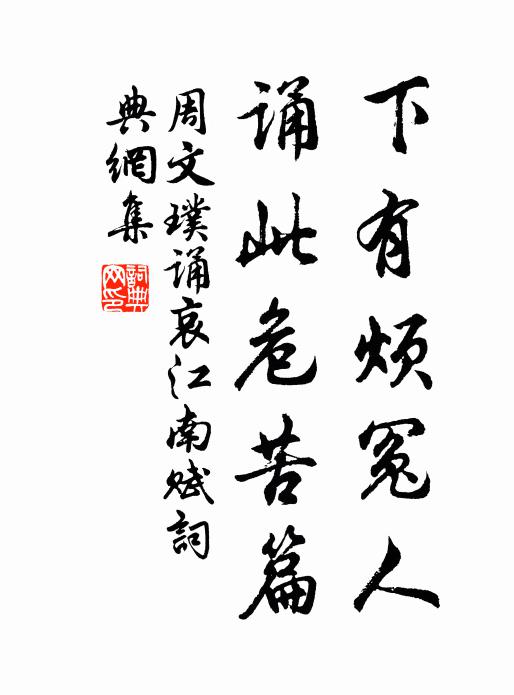 下有烦冤人
诵此危苦篇
周文璞诵哀江南赋詞
典網集
詞典网印